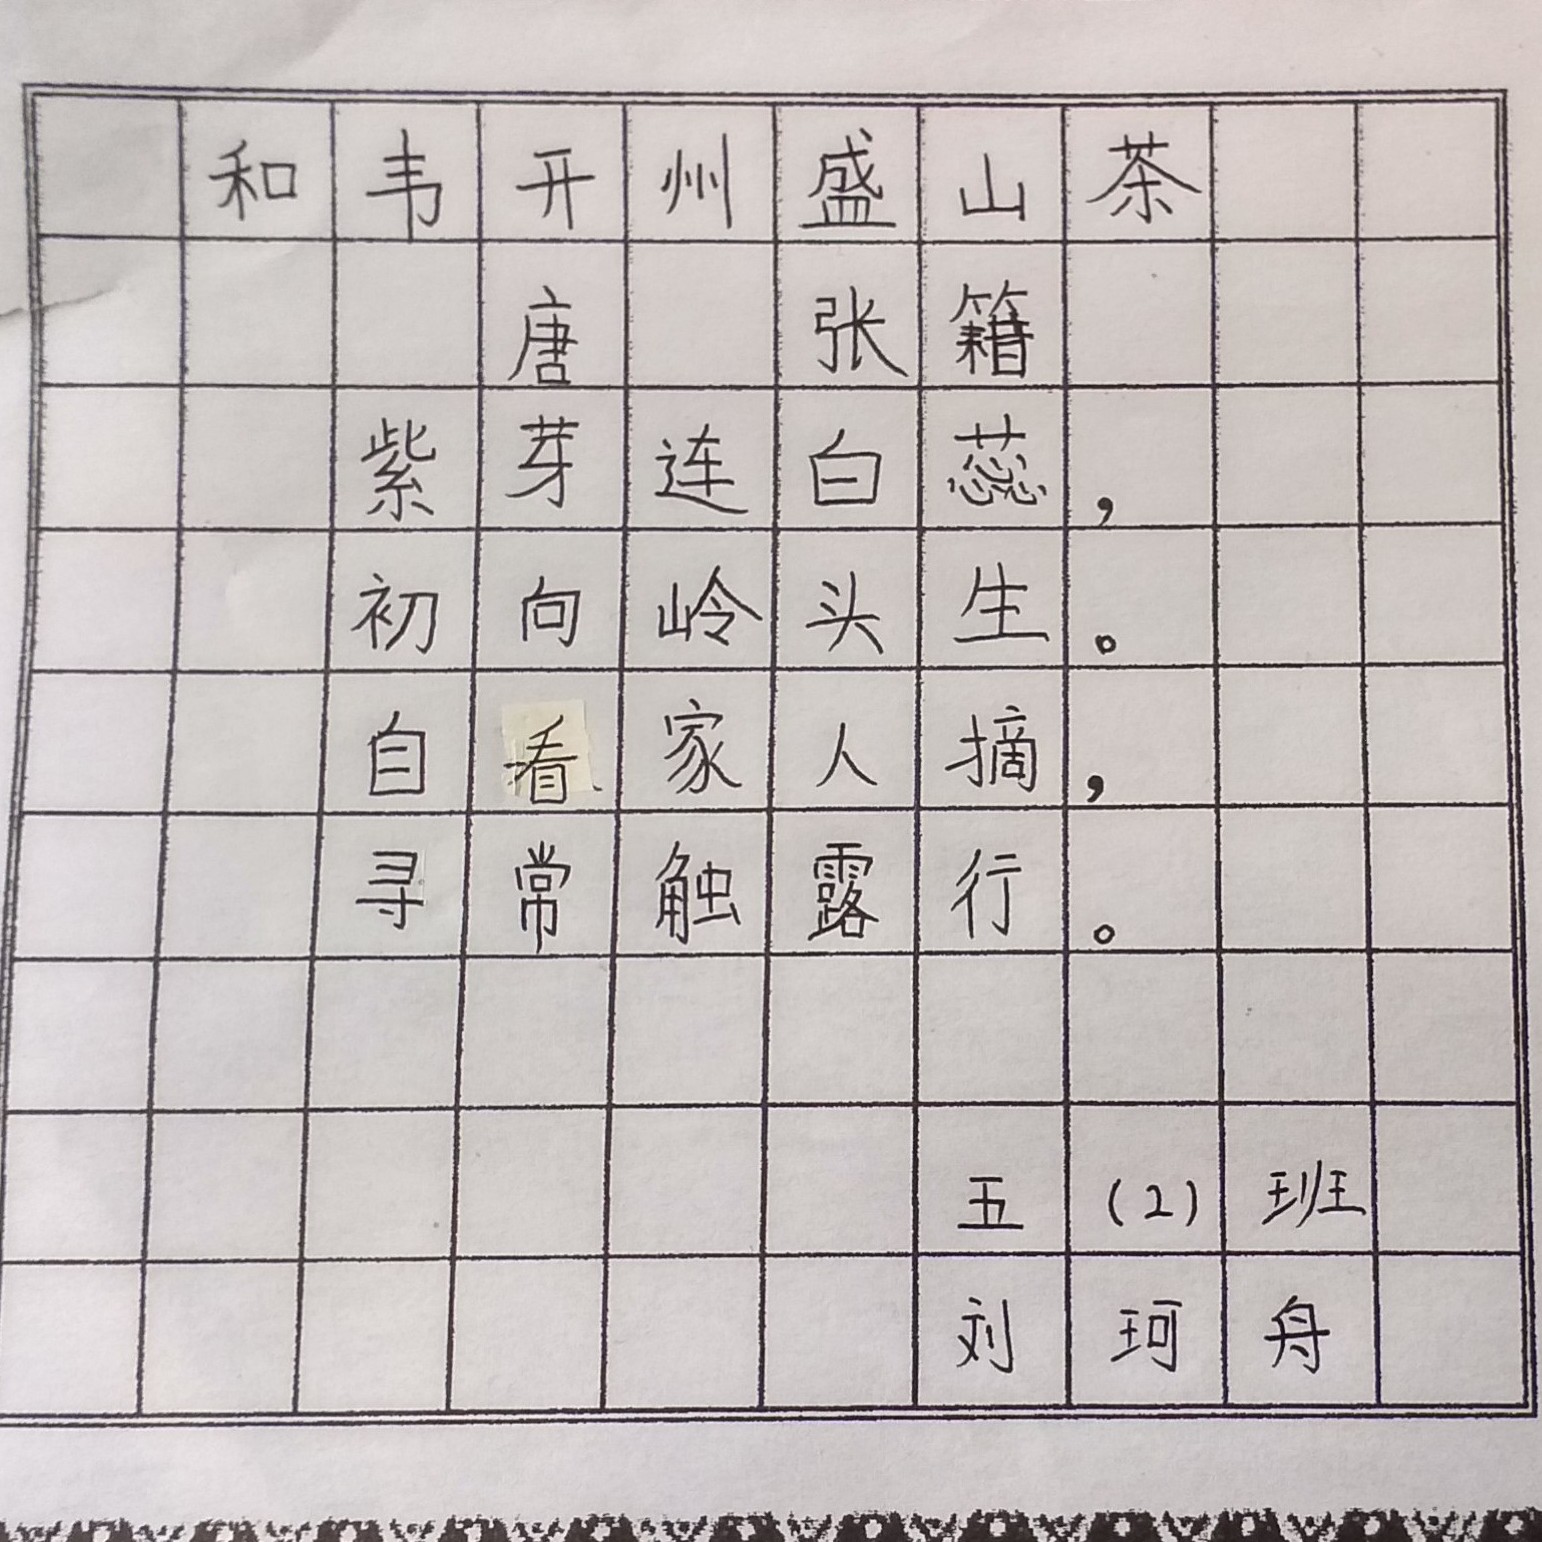 和韦开州盛山茶
唐 张籍
紫芽连白蕊，
初向岭头生。
自看家人摘，
寻常触露行。
五(2)班
刘珂舟